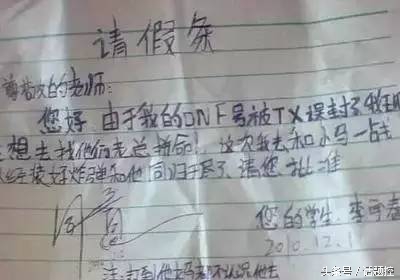 请假条
尊敬的老师:
您好,由于我的DNF号被TX误封了,我现
想去找他们老总拼命!这次我去和小马一战
经装好炸弹和他同归于尽了,请您批准
同意
您的学生:李
2010.12.1
注:打到他妈都不认识他去
头条号/话题控